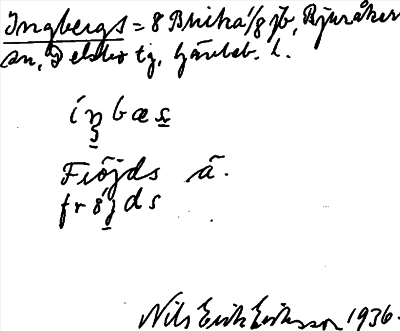 Ingbergs = 8 Bricka 1/8 jb, Bjuråker
sn, Delsbo tg, Gävleb. l.
íŋbæs
Fröjds å.
frö́jds
Nils Erik Eriksson 1936.